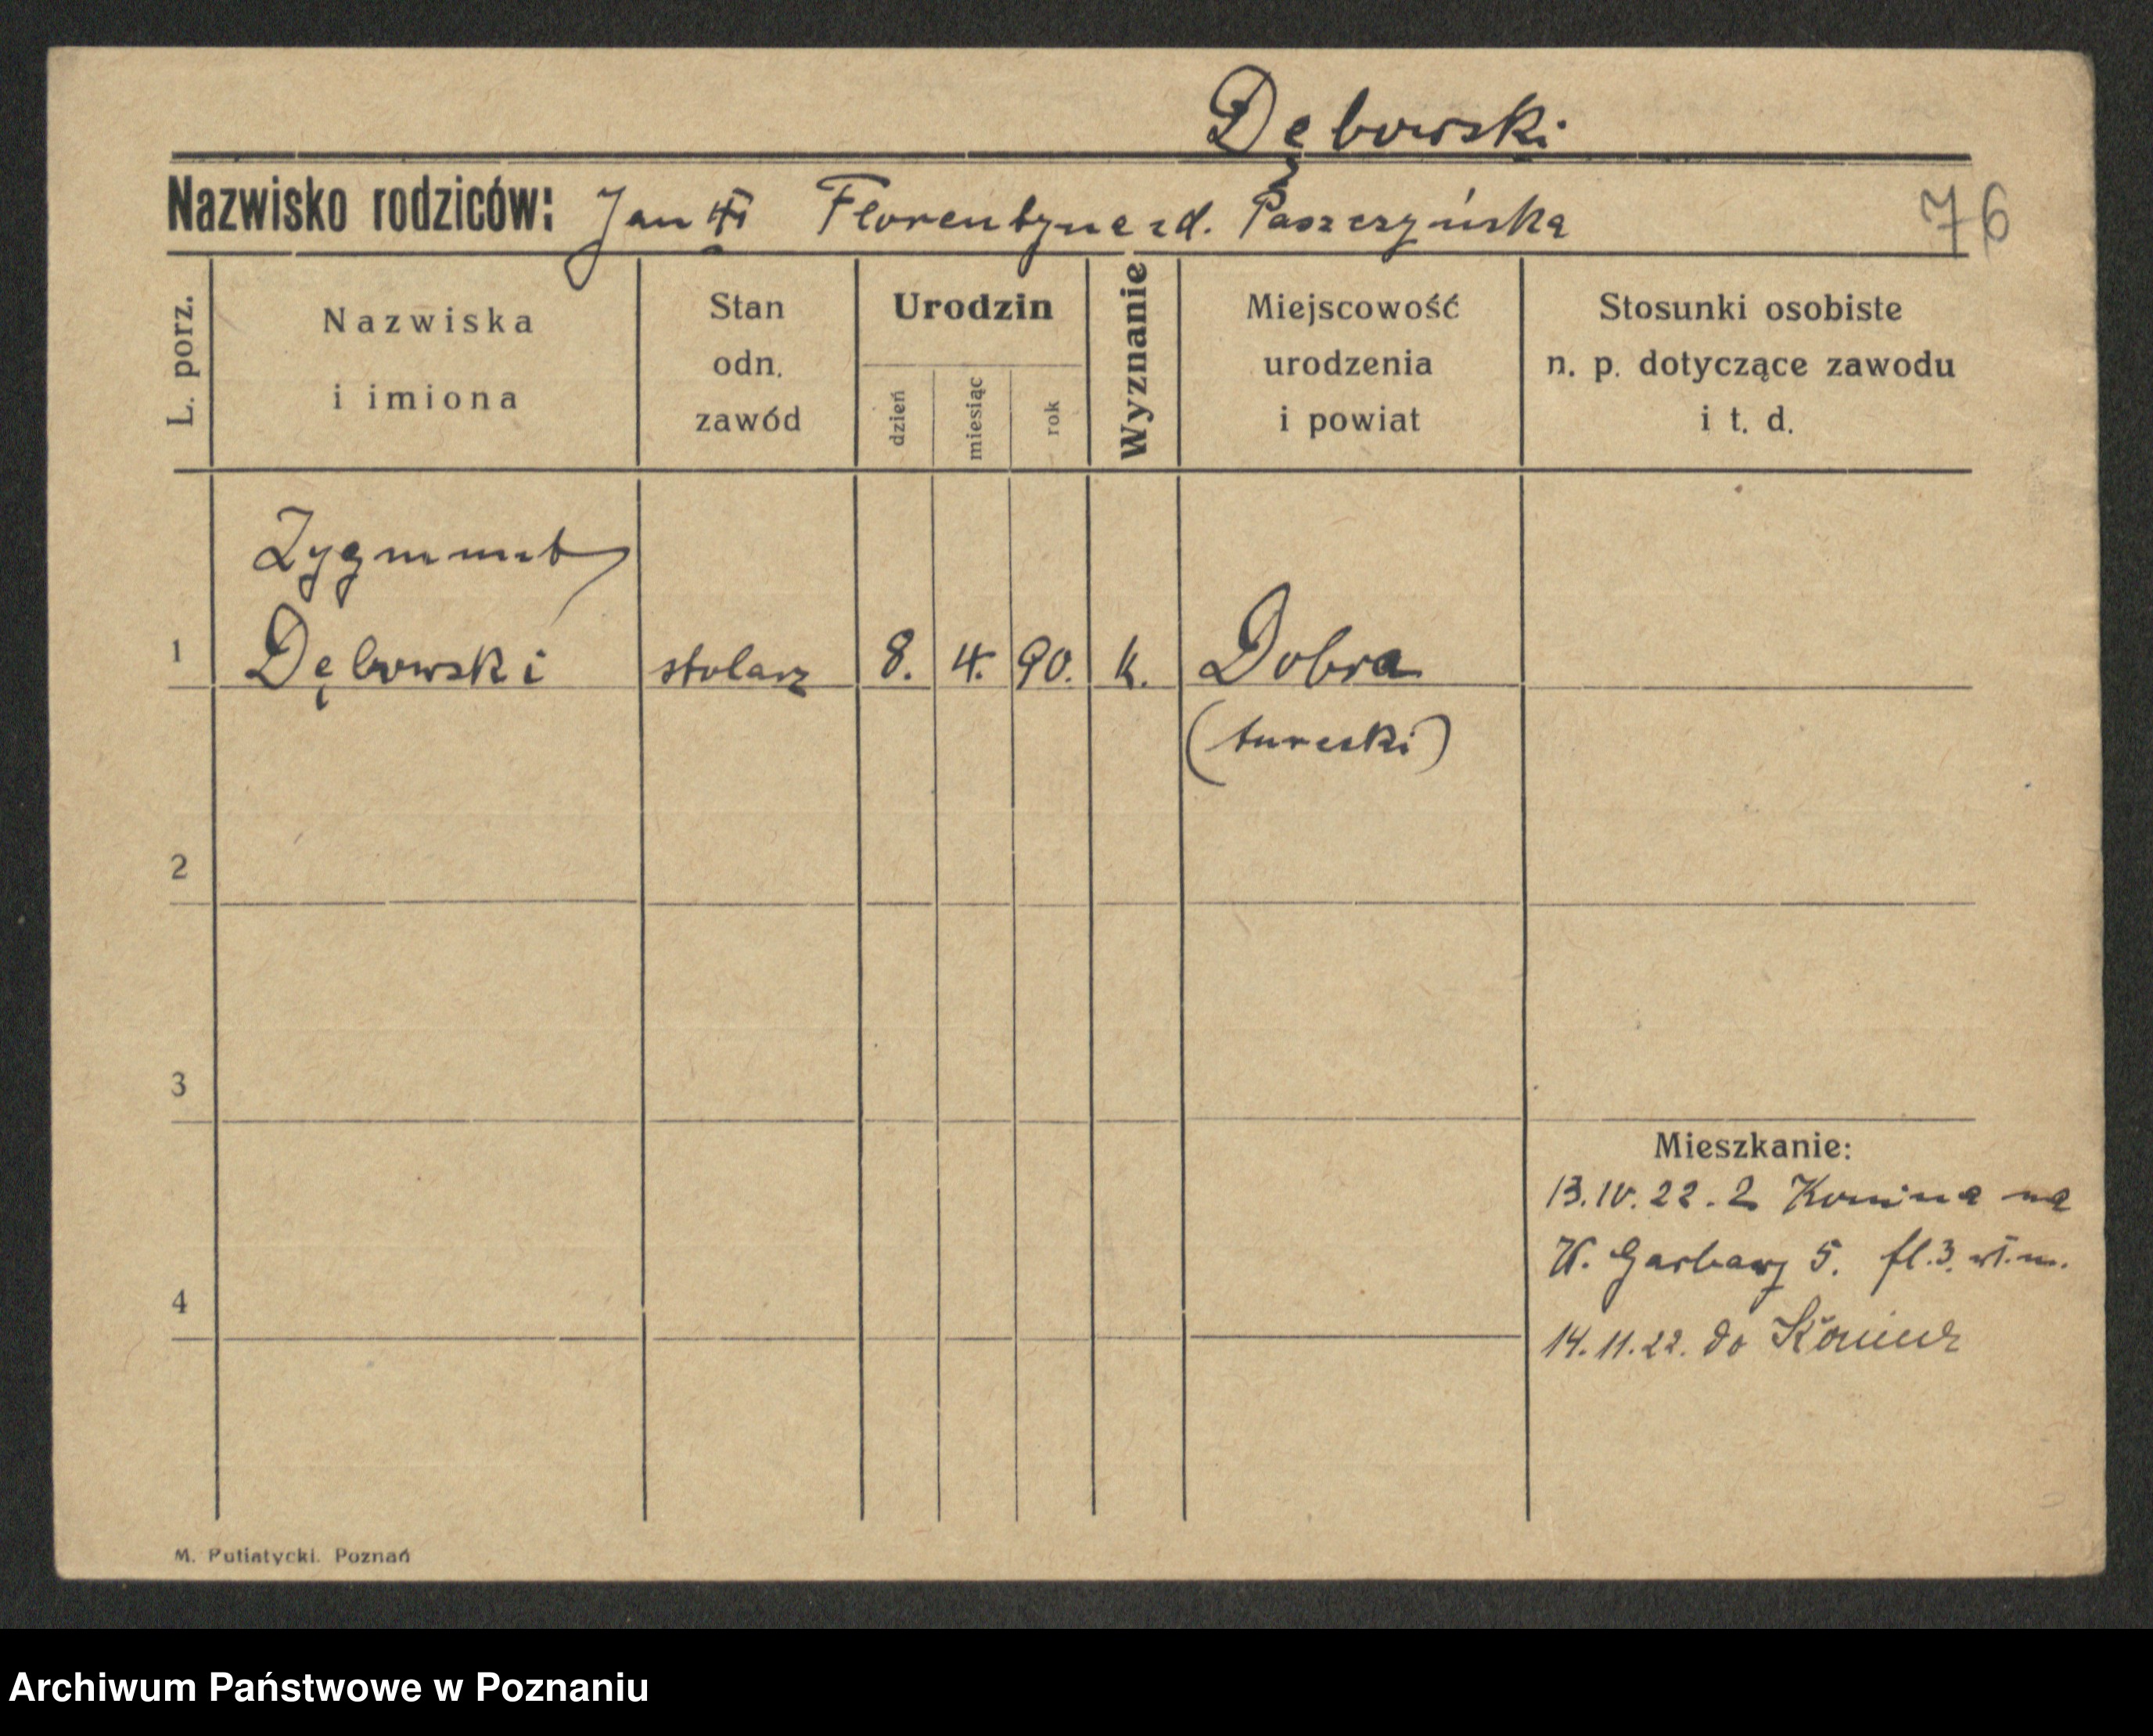 Dębowski
Nazwisko rodziców: Jan i Florentyna zd. Paszczyńska
76
L. porz.
Nazwiska
i imiona
Stan
odn.
zawód
Urodzin
dzień
miesiąc
rok
Wyznanie
Miejscowość
urodzenia
i powiat
Stosunki osobiste
n. p. dotyczące zawodu
i t. d.
Zygmunt
1 Dębowski stolarz 8. 4. 90. k. Dobra
(turecki)
2
3
Mieszkanie:
13.IV.22. z Konina na
W. Garbary 5. fl.3.
4
14.11.22. do Konina
M. Putiatycki. Poznań
Archiwum Państwowe w Poznaniu